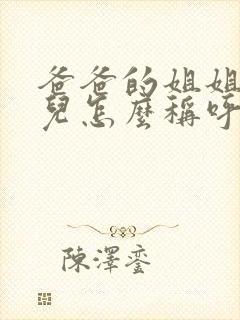 爸爸的姐姐
兒怎麼稱呼
陳澤鑾